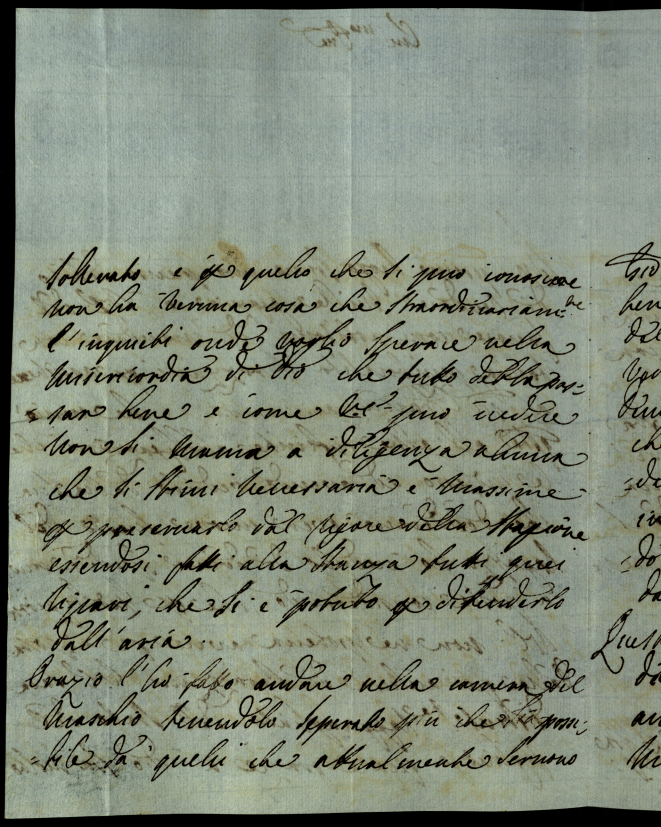 sollevato e p quello che si puo conoscere
non ha veruna cosa che straordinariam:te
l'inquieti onde voglio sperare nella
Misericordia di Dio che tutto debba pas=
=sar bene e come V.S. puo credere
non si manca a diligenza alcuna
che si stimi necessaria e massime
p preservarlo dal rigore della stagione
essendosi fatti alla stanza tutti quei
ripari, che si è potuto p difenderlo
dall'aria.
Orazio l'ho fatto andare nella camera del
Maschio tenendolo separato più che sia possi=
=bile da quelli che attualmente servono